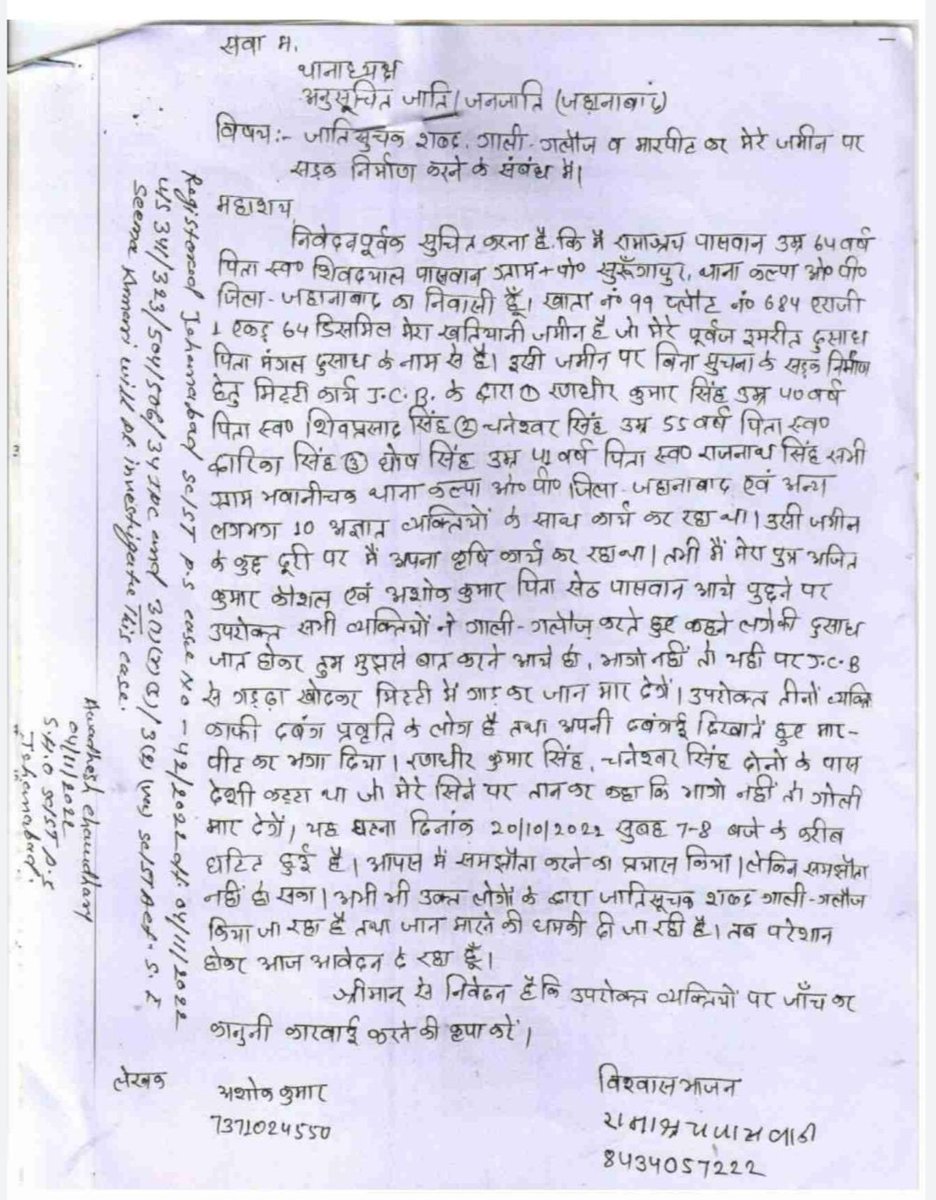 सेवा में,
थानाध्यक्ष
अनुसूचित जाति/जनजाति (जहानाबाद)
विषय:- जातिसूचक शब्द, गाली-गलौज व मारपीट कर मेरे जमीन पर
सड़क निर्माण करने के संबंध में।
महाशय,
निवेदनपूर्वक सुचित करना है कि मै रामाश्रय पासवान उम्र 64 वर्ष
पिता स्व० शिवदयाल पासवान ग्राम+पो० सुरूँगापुर, थाना कल्पा ओ० पी०
जिला-जहानाबाद का निवासी हूँ। खाता नं० 99 प्लौट नं० 684 एराजी
1 एकड़ 64 डिसमिल मेरा खतियानी जमीन है जो मेरे पूर्वज इमरीत दुसाध
पिता मंगल दुसाध के नाम से है। इसी जमीन पर बिना सुचना के सड़क निर्माण
हेतु मिटटी कार्य J.C.B. के द्वारा ① रणधीर कुमार सिंह उम्र 40 वर्ष
पिता स्व० शिवप्रसाद सिंह ② चनेश्वर सिंह उम्र 55 वर्ष पिता स्व०
द्वारिका सिंह ③ घोष सिंह उम्र वर्ष पिता स्व० राजनाथ सिंह सभी
ग्राम भवानीचक थाना कल्पा ओ० पी० जिला-जहानाबाद एवं अन्य
लगभग 10 अज्ञात व्यक्तियों के साथ कार्य कर रहा था। उसी जमीन
के कुछ दूरी पर मैं अपना कृषि कार्य कर रहा था। तभी मैं मेरा पुत्र अजित
कुमार कौशल एवं अशोक कुमार पिता सेठ पासवान आये पुछने पर
उपरोक्त सभी व्यक्तियों ने गाली-गलौज करते हुए कहने लगे की दुसाध
जात होकर तुम मुझसे बात करने आये हो, भागो नहीं तो यही पर J.C.B
से गड्ढा खोदकर मिटटी में गाड़ कर जान मार देगें। उपरोक्त तीनों व्यक्ति
काफी दबंग प्रवृति के लोग है तथा अपनी दबंगई दिखाते हुए मार-
पीट कर भगा दिया। रणधीर कुमार सिंह, चनेश्वर सिंह दोनों के पास
देशी कट्टा था जो मेरे सिने पर तानकर कहा कि भागो नहीं तो गोली
मार देगें। यह घटना दिनांक 20/10/2022 सुबह 7-8 बजे के करीब
घटित हुई है। आपस में समझौता करने का प्रयास किया। लेकिन समझौता
नहीं हो सका। अभी भी उक्त लोगों के द्वारा जातिसूचक शब्द गाली-गलौज
किया जा रहा है तथा जान मारने की धमकी दी जा रही है। तब परेशान
होकर आज आवेदन दे रहा हूँ।
श्रीमान् से निवेदन है कि उपरोक्त व्यक्तियों पर जाँच कर
कानुनी कारवाई करने की कृपा करें।
लेखक
अशोक कुमार
7371024550
विश्वासभाजन
रामाश्रय पासवान
8434057222
Registered Jehanabad Sc/ST P.S case No - 42/2022 dt. 04/11/2022
u/s 341/323/504/506/34 IPC and Sc/ST Act. S.I
Seema Kumari will pl. investigate This case.
Awadhesh Chaudhary
04/11/2022
S.H.O Sc/ST P.S
Jehanabad.